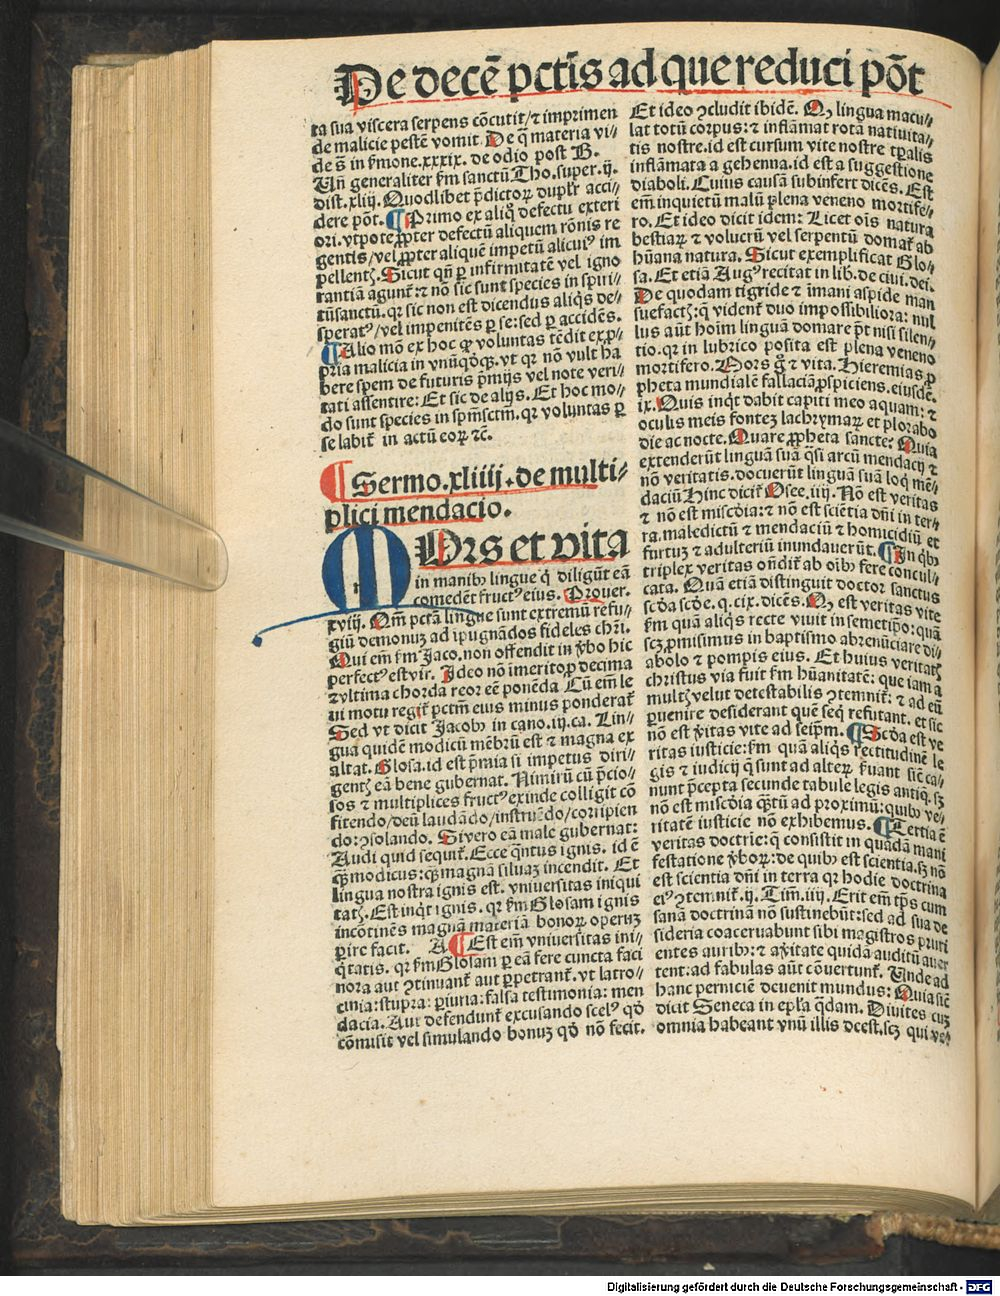 De decē pctīs ad que reduci pōt
ta sua viscera serpens cōcutit/ ⁊ imprimen
de malicie pestē vomit. De q̄ materia vi⸗
de s̄ in ẜmone.xxxix. de odio post B.
Uñ generaliter ẜm sanctū Tho.super.ij.
dist.xliij. Quodlibet p̄dictoꝝ dupłr acci⸗
dere pōt. ¶ Primo ex aliq̊ defectu exteri
ori.vtpote ꝓpter defectū aliquem rōnis re
gentis/vel ꝓpter aliquē impetū alicuiꝰ im
pellentꝭ. Sicut qñ ꝑ infirmitatē vel igno
rantiā agunt᷑: ⁊ nō sic sunt species in spiri⸗
tūsanctū.qꝛ sic non est dicendus aliq̄s de⸗
speratꝰ/vel impenitēs ꝑ se: sed ꝑ accidēs.
¶ Alio mō ex hoc ꝙ voluntas tēdit ex ꝓ⸗
pria malicia in vnūq̊dqꝫ. vt qꝛ nō vult ha
bere spem de futuris p̄mijs vel note veri⸗
tati assentire: Et sic de alijs. Et hoc mo⸗
do sunt species in spm̄sctm̄. qꝛ voluntas ꝑ
se labit᷑ in actū eoꝝ ⁊c̄.
¶ Sermo.xliiij. de multi⸗
plici mendacio.
MOrs et vita
in manibꝰ lingue q̇ diligūt eā
comedēt fructꝰ eius. Prouer.
xviij. Qm̄ pctā lingue sunt extremū refu⸗
giū demonuꝫ ad ipugnādos fideles chri.
Qui em̄ ẜm Jaco. non offendit in v̄bo hic
perfectꝰ est vir. Ideo nō īmerito ꝓ decima
⁊ vltima chorda reor eē ponēda Cū em̄ le
ui motu regit᷑ pctm̄ eius minus ponderat᷑
Sed vt dicit Jacobꝰ in cano.iij.ca. Lin⸗
gua quidē modicū mēbrū est ⁊ magna ex
altat. Glosa.id est p̄mia si impetus diri⸗
gentꝭ eā bene gubernat. Nimirū cū p̄cio⸗
sos ⁊ multiplices fructꝰ exinde colligit cō
fitendo/deū laudādo/instruēdo/corripien
do: ⁊solando. Si vero eā male gubernat:
Audi quid sequit᷑. Ecce q̄ntus ignis. id ē
q̄ꝫ modicus: q̄ꝫ magnā siluaꝫ incendit. Et
lingua nostra ignis est. vniuersitas iniqui
tatꝭ. Est inq̄t ignis. qꝛ ẜm Glosam ignis
incōtinēs magnā materiā bonoꝝ operuꝫ
ꝑire facit. A ¶ Est em̄ vniuersitas ini⸗
q̇tatis. qꝛ ẜm Glosam ꝑ eā fere cuncta faci
nora aut ⁊tinuant᷑ aut ꝑpetrant᷑. vt latro⸗
cinia: stupra: ꝑiuria: falsa testimonia: men
dacia. Aut defendunt᷑ excusando scelꝰ qd̓
cōmisit vel simulando bonuꝫ qd̓ nō fecit.
Et ideo ⁊cludit ibidē. Qꝫ lingua macu⸗
lat totū corpus: ⁊ inflāmat rotā natiuita⸗
tis nostre.id est cursum vite nostre tꝑalis
inflāmata a gehenna.id est a suggestione
diaboli. Cuius causā subinfert dicēs. Est
em̄ inquietū malū plena veneno mortife⸗
ro. Et ideo dicit idem: Licet oīs natura
bestiaꝝ ⁊ volucrū vel serpentū domat᷑ ab
hūana natura. Sicut exemplificat Glo⸗
sa. Et etiā Augꝰ recitat in lib. de ciui. dei.
De quodam tigride ⁊ īmani aspide man
suefactꝭ: q̄ vident᷑ duo impossibiliora: nul
lus aūt hoīm linguā domare pt̄ nisi silen⸗
tio. qꝛ in lubrico posita est plena veneno
mortifero. Mors g̊ ⁊ vita. Hieremias ꝓ
pheta mundialē fallaciā ꝓspiciens. eiusdē.
ix. Quis inq̄t dabit capiti meo aquam: ⁊
oculis meis fonteꝫ lachrymaꝝ et plorabo
die ac nocte. Quare ꝓpheta sancte: Quia
extenderūt linguā suā q̄si arcū mendacij ⁊
nō veritatis. docuerūt linguā suā loq̇ mē⸗
daciū Hinc dicit᷑ Osee.iiij. Nō est veritas
⁊ nō est miscd̓ia: ⁊ nō est sciētia dn̄i in ter⸗
ra. maledictū ⁊ mendaciū ⁊ homicidiū et
furtuꝫ ⁊ adulteriū inundauerūt. ¶ In q̇bꝰ
triplex veritas oñdit᷑ ab oībꝰ fere concul⸗
cata. Quā etiā distinguit doctor sanctus
scd̓a scd̓e. q. cix. dicēs. Qꝫ est veritas vite
ẜm quā aliq̄s recte viuit in semetip̄o: quā
scꝫ ꝓmisimus in baptismo abrenūciare di⸗
abolo ⁊ pompis eius. Et huius veritatꝭ
christus via fuit ẜm hūanitatē: que iam a
multꝭ velut detestabilis ⁊temnit᷑: ⁊ ad eū
ꝑuenire desiderant quē seq̇ refutant. et sic
nō est v̄itas vite ad seip̄m. ¶ Scd̓a est ve
ritas iusticie: ẜm quā aliq̄s rectitudinē le
gis ⁊ iudicij q̄ sunt ad alteꝝ ẜuant sic̄ ca⸗
nunt p̄cepta secunde tabule legis antiq̄. sꝫ
nō est miscd̓ia q̄ꝫtū ad proximū: quibꝰ ve⸗
ritatē iusticie nō exhibemus. ¶ Tertia ē
veritas doctrie: q̄ consistit in quadā mani
festatione v̄boꝝ: de quibꝰ est scientia. sꝫ nō
est scientia dn̄i in terra qꝛ hodie doctrina
eiꝰ ⁊temnit᷑. ij. Tim̄. iiij. Erit em̄ tp̄s cum
sanā doctrinā nō sustinebūt: sed ad sua de
sideria coaceruabunt sibi magistros pruri
entes auribꝰ: ⁊ a v̄itate quidā auditū auer
tent: ad fabulas aūt cōuertunt᷑. Unde ad
hanc perniciē deuenit mundus: Quia sic̄
dicit Seneca in epl̄a q̄dam. Diuites cuꝫ
omnia habeant vnū illis deest. scꝫ qui ve⸗
Digitalisierung gefördert durch die Deutsche Forschungsgemeinschaft - DFG